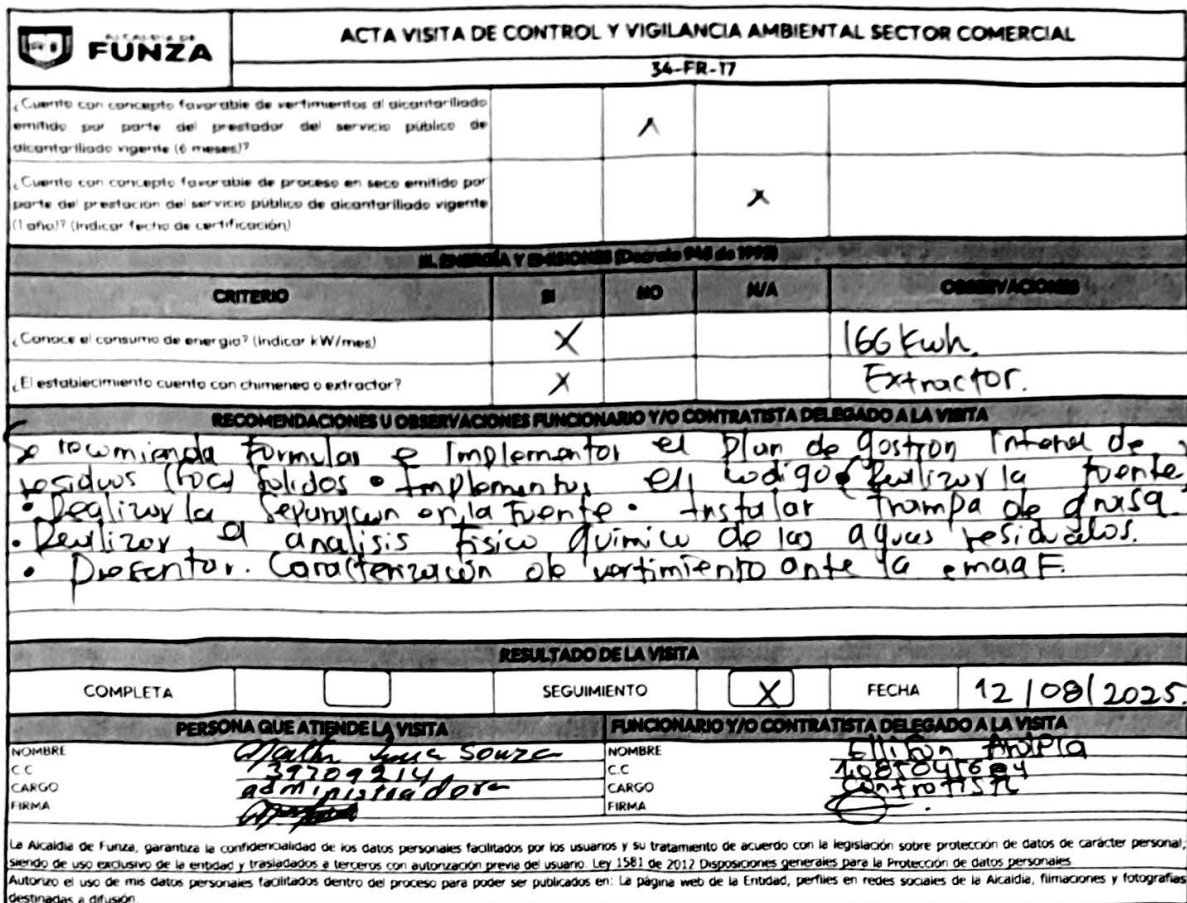 ALCALDIA DE
FUNZA
ACTA VISITA DE CONTROL Y VIGILANCIA AMBIENTAL SECTOR COMERCIAL
34-FR-17
¿Cuenta con concepto favorable de vertimientos al alcantarillado
emitido por parte del prestador del servicio público de
alcantarillado vigente (6 meses)?
X
¿Cuenta con concepto favorable de proceso en seco emitido por
parte del prestación del servicio público de alcantarillado vigente
(1 año)? (Indicar fecha de certificación)
X
III. ENERGÍA Y EMISIONES (Decreto 948 de 1995)
CRITERIO SI NO N/A OBSERVACIONES
¿Conoce el consumo de energia? (Indicar kW/mes) X 166 Kwh.
¿El establecimiento cuenta con chimenea o extractor? X Extractor.
RECOMENDACIONES U OBSERVACIONES FUNCIONARIO Y/O CONTRATISTA DELEGADO A LA VISITA
Se recomienda Formular e Implementar el Plan de gestion Interal de
residuos Solidos • Implementar el codigo Realizar la fuente
• Realizar la Separacion en la Fuente • Instalar Trampa de grasa
• Realizar el analisis Fisico Quimico de las aguas residuales.
• Presentar. Caracterización de vertimiento ante la emaaF.
RESULTADO DE LA VISITA
COMPLETA SEGUIMIENTO X FECHA 12/08/2025.
PERSONA QUE ATIENDE LA VISITA FUNCIONARIO Y/O CONTRATISTA DELEGADO A LA VISITA
NOMBRE Souza NOMBRE
C C 39709214 C C
CARGO administradora CARGO Contratista
FIRMA FIRMA
La Alcaldía de Funza, garantiza la confidencialidad de los datos personales facilitados por los usuarios y su tratamiento de acuerdo con la legislación sobre protección de datos de carácter personal;
siendo de uso exclusivo de la entidad y trasladados a terceros con autorización previa del usuario. Ley 1581 de 2012 Disposiciones generales para la Protección de datos personales
Autorizo el uso de mis datos personales facilitados dentro del proceso para poder ser publicados en: La página web de la Entidad, perfiles en redes sociales de la Alcaldia, filmaciones y fotografías
destinadas a difusión.